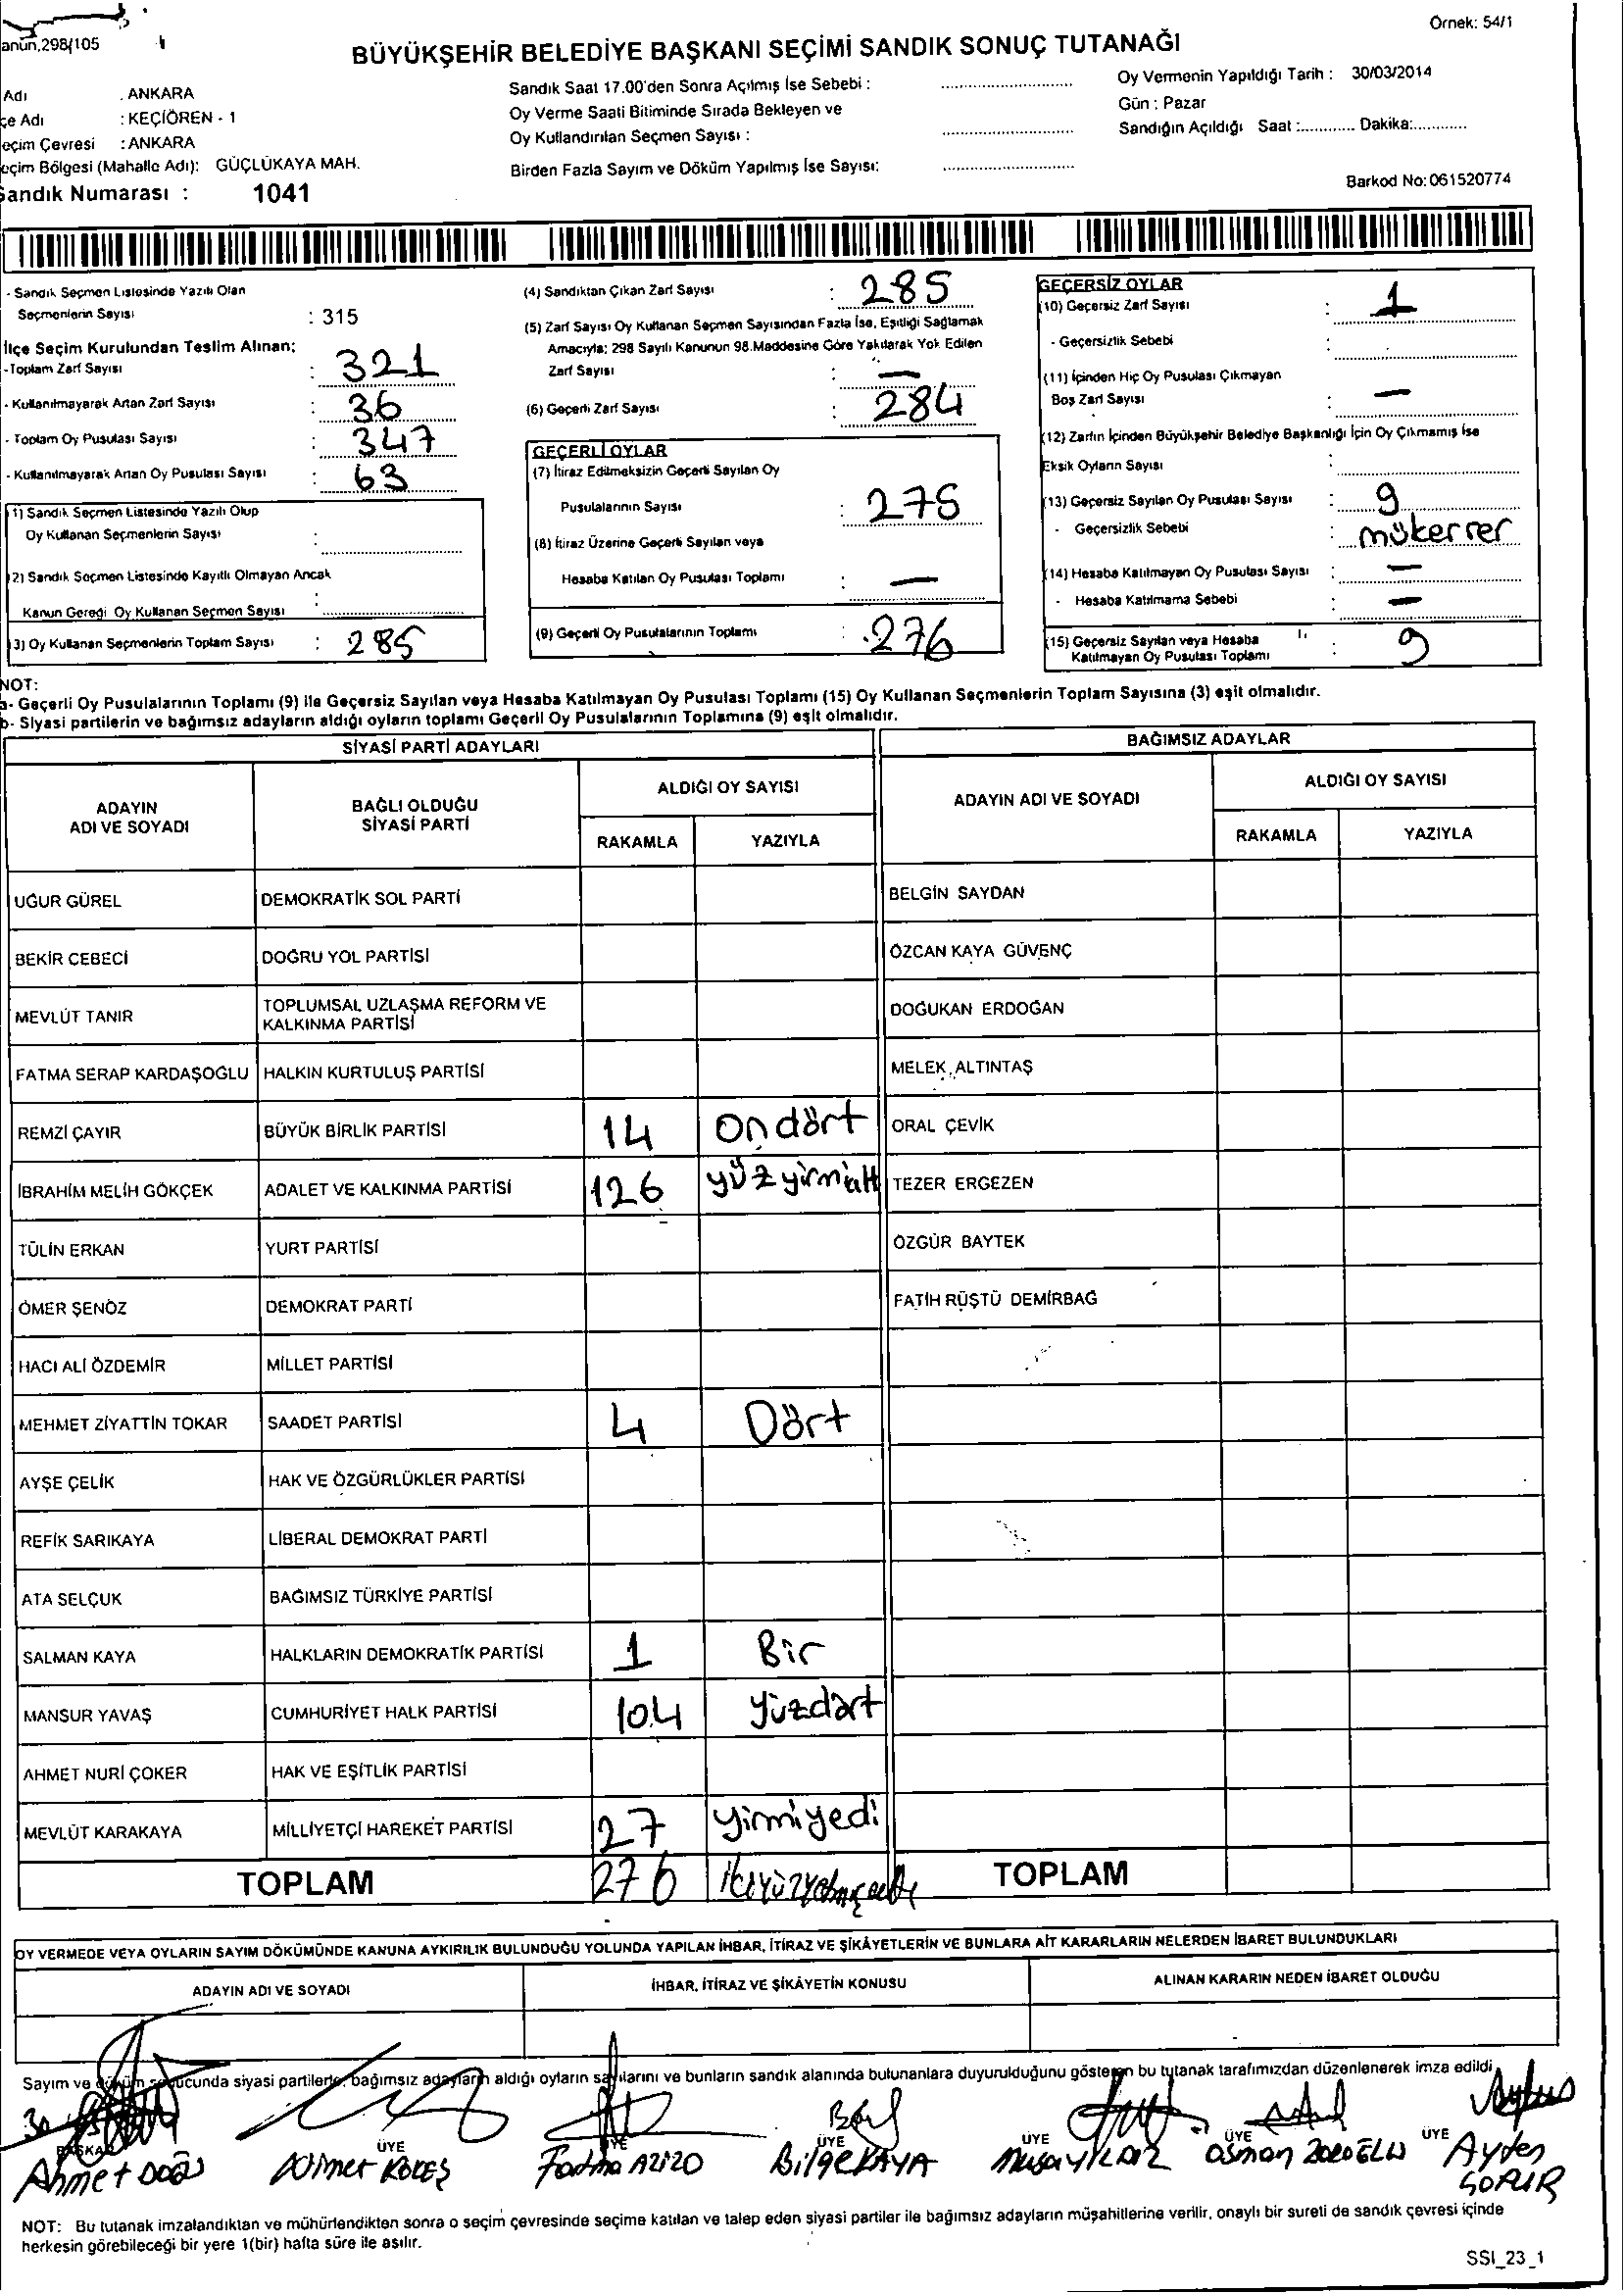 Örnek: 54/1
anun,298/105
BÜYÜKŞEHİR BELEDİYE BAŞKANI SEÇİMİ SANDIK SONUÇ TUTANAĞI
Adı : ANKARA
çe Adı : KEÇİÖREN - 1
eçim Çevresi : ANKARA
eçim Bölgesi (Mahalle Adı): GÜÇLÜKAYA MAH.
Sandık Numarası : 1041
Sandık Saat 17.00'den Sonra Açılmış İse Sebebi :
Oy Verme Saati Bitiminde Sırada Bekleyen ve
Oy Kullandırılan Seçmen Sayısı :
Birden Fazla Sayım ve Döküm Yapılmış İse Sayısı:
Oy Vermenin Yapıldığı Tarih : 30/03/2014
Gün : Pazar
Sandığın Açıldığı Saat :............ Dakika:............
Barkod No: 061520774
- Sandık Seçmen Listesinde Yazılı Olan
Seçmenlerin Sayısı : 315
İlçe Seçim Kurulundan Teslim Alınan;
-Toplam Zarf Sayısı : 321
- Kullanılmayarak Artan Zarf Sayısı : 36
- Toplam Oy Pusulası Sayısı : 347
- Kullanılmayarak Artan Oy Pusulası Sayısı : 63
(1) Sandık Seçmen Listesinde Yazılı Olup
Oy Kullanan Seçmenlerin Sayısı :
(2) Sandık Seçmen Listesinde Kayıtlı Olmayan Ancak
Kanun Gereği Oy Kullanan Seçmen Sayısı :
(3) Oy Kullanan Seçmenlerin Toplam Sayısı : 285
(4) Sandıktan Çıkan Zarf Sayısı : 285
(5) Zarf Sayısı Oy Kullanan Seçmen Sayısından Fazla İse, Eşitliği Sağlamak
Amacıyla; 298 Sayılı Kanunun 98.Maddesine Göre Yakılarak Yok Edilen
Zarf Sayısı : —
(6) Geçerli Zarf Sayısı : 284
GEÇERLİ OYLAR
(7) İtiraz Edilmeksizin Geçerli Sayılan Oy
Pusulalarının Sayısı : 275
(8) İtiraz Üzerine Geçerli Sayılan veya
Hesaba Katılan Oy Pusulası Toplamı : —
(9) Geçerli Oy Pusulalarının Toplamı : 276
GEÇERSİZ OYLAR
(10) Geçersiz Zarf Sayısı : 1
- Geçersizlik Sebebi :
(11) İçinden Hiç Oy Pusulası Çıkmayan
Boş Zarf Sayısı : —
(12) Zarfın İçinden Büyükşehir Belediye Başkanlığı İçin Oy Çıkmamış İse
Eksik Oyların Sayısı :
(13) Geçersiz Sayılan Oy Pusulası Sayısı : 9
- Geçersizlik Sebebi : mükerrer
(14) Hesaba Katılmayan Oy Pusulası Sayısı : —
- Hesaba Katılmama Sebebi : —
(15) Geçersiz Sayılan veya Hesaba
Katılmayan Oy Pusulası Toplamı : 9
NOT:
a- Geçerli Oy Pusulalarının Toplamı (9) ile Geçersiz Sayılan veya Hesaba Katılmayan Oy Pusulası Toplamı (15) Oy Kullanan Seçmenlerin Toplam Sayısına (3) eşit olmalıdır.
b- Siyasi partilerin ve bağımsız adayların aldığı oyların toplamı Geçerli Oy Pusulalarının Toplamına (9) eşit olmalıdır.
SİYASİ PARTİ ADAYLARI BAĞIMSIZ ADAYLAR
ADAYIN ADI VE SOYADI BAĞLI OLDUĞU SİYASİ PARTİ ALDIĞI OY SAYISI ADAYIN ADI VE SOYADI ALDIĞI OY SAYISI
RAKAMLA YAZIYLA RAKAMLA YAZIYLA
UĞUR GÜREL DEMOKRATİK SOL PARTİ BELGİN SAYDAN
BEKİR CEBECİ DOĞRU YOL PARTİSİ ÖZCAN KAYA GÜVENÇ
MEVLÜT TANIR TOPLUMSAL UZLAŞMA REFORM VE KALKINMA PARTİSİ DOĞUKAN ERDOĞAN
FATMA SERAP KARDAŞOĞLU HALKIN KURTULUŞ PARTİSİ MELEK ALTINTAŞ
REMZİ ÇAYIR BÜYÜK BİRLİK PARTİSİ 14 Ondört ORAL ÇEVİK
İBRAHİM MELİH GÖKÇEK ADALET VE KALKINMA PARTİSİ 126 yüzyirmialtı TEZER ERGEZEN
TÜLİN ERKAN YURT PARTİSİ ÖZGÜR BAYTEK
ÖMER ŞENÖZ DEMOKRAT PARTİ FATİH RÜŞTÜ DEMİRBAĞ
HACI ALİ ÖZDEMİR MİLLET PARTİSİ
MEHMET ZİYATTİN TOKAR SAADET PARTİSİ 4 Dört
AYŞE ÇELİK HAK VE ÖZGÜRLÜKLER PARTİSİ
REFİK SARIKAYA LİBERAL DEMOKRAT PARTİ
ATA SELÇUK BAĞIMSIZ TÜRKİYE PARTİSİ
SALMAN KAYA HALKLARIN DEMOKRATİK PARTİSİ 1 Bir
MANSUR YAVAŞ CUMHURİYET HALK PARTİSİ 104 yüzdört
AHMET NURİ ÇOKER HAK VE EŞİTLİK PARTİSİ
MEVLÜT KARAKAYA MİLLİYETÇİ HAREKET PARTİSİ 27 yirmiyedi
TOPLAM 276 ikiyüzyetmişaltı TOPLAM
OY VERMEDE VEYA OYLARIN SAYIM DÖKÜMÜNDE KANUNA AYKIRILIK BULUNDUĞU YOLUNDA YAPILAN İHBAR, İTİRAZ VE ŞİKÂYETLERİN VE BUNLARA AİT KARARLARIN NELERDEN İBARET BULUNDUKLARI
ADAYIN ADI VE SOYADI İHBAR, İTİRAZ VE ŞİKÂYETİN KONUSU ALINAN KARARIN NEDEN İBARET OLDUĞU
Sayım ve döküm sonucunda siyasi partilerle, bağımsız adayların aldığı oyların sayılarını ve bunların sandık alanında bulunanlara duyurulduğunu gösteren bu tutanak tarafımızdan düzenlenerek imza edildi.
BAŞKAN ÜYE ÜYE ÜYE ÜYE ÜYE ÜYE
Ahmet Fatma AZİZO Bilge KAYA Musa YILDIZ Osman Ayten
NOT: Bu tutanak imzalandıktan ve mühürlendikten sonra o seçim çevresinde seçime katılan ve talep eden siyasi partiler ile bağımsız adayların müşahitlerine verilir, onaylı bir sureti de sandık çevresi içinde
herkesin görebileceği bir yere 1(bir) hafta süre ile asılır.
SSI_23_1